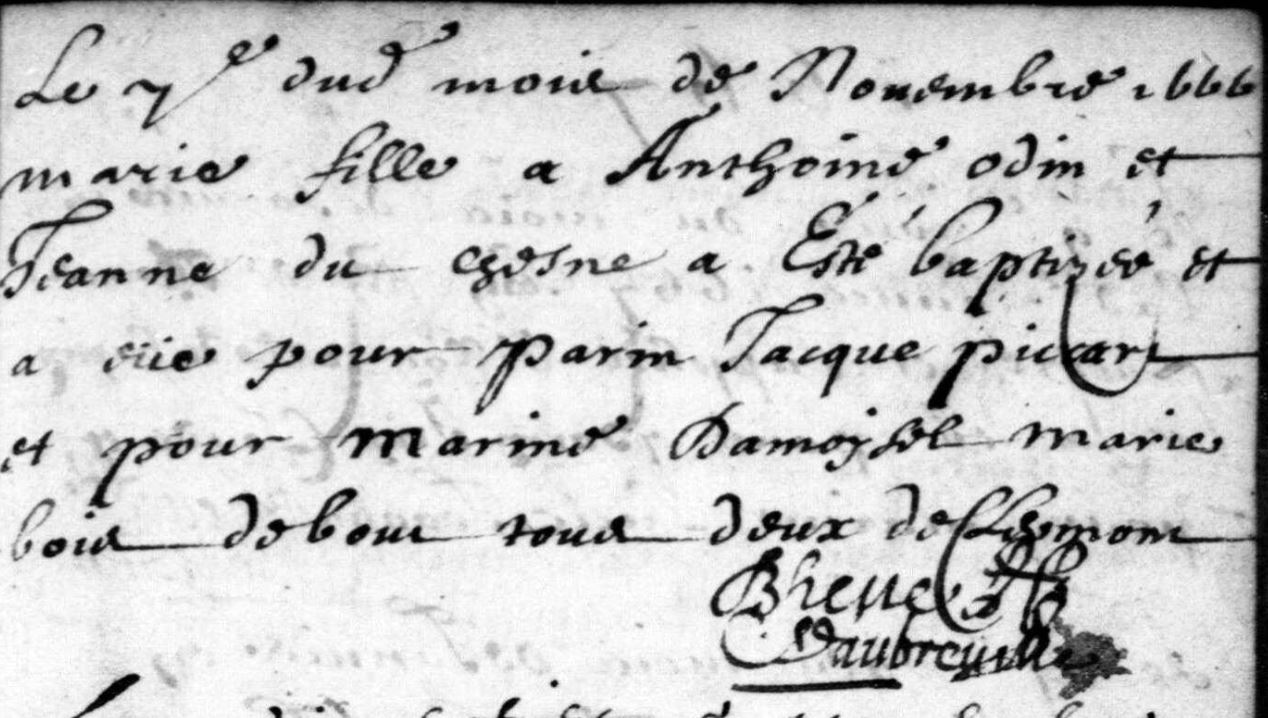 Le 7e dud mois de Novembre 1666
marie fille a Anthoine odin et
Jeanne du chesne a Esté baptizeé et
a eüe pour parin Jacque piccart
et pour marine Damoiselle marie
bois debout tous deux de Clermont
d'aubreuille